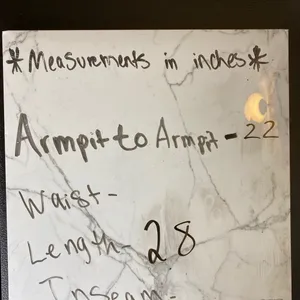 *Measurements in inches*
Armpit to Armpit - 22
Waist -
Length - 28
Inseam -